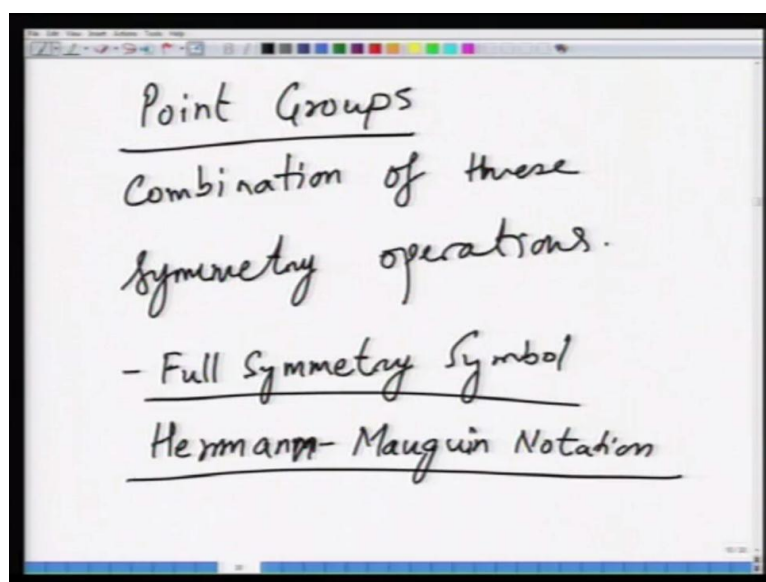 File Edit View Insert Actions Tools Help
Point Groups
Combination of these
symmetry operations.
- Full Symmetry Symbol
Hermann-Mauguin Notation